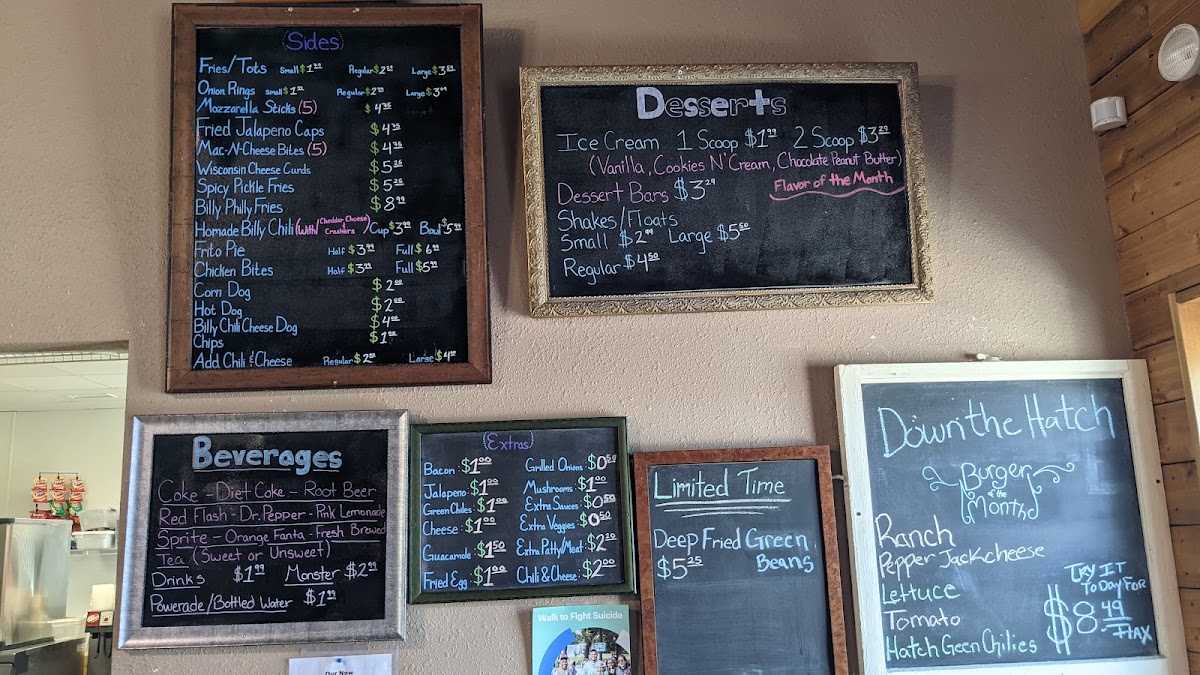 Sides
Fries/Tots Small $1.99 Regular $2.19 Large $3.69
Onion Rings Small $1.99 Regular $2.79 Large $3.99
Mozzarella Sticks (5) $4.35
Fried Jalapeno Caps $4.35
Mac-N-Cheese Bites (5) $4.35
Wisconsin Cheese Curds $5.25
Spicy Pickle Fries $5.25
Billy Philly Fries $8.99
Homade Billy Chili (With/ Cheddar Cheese & Crackers) Cup $3.99 Bowl $5.99
Frito Pie Half $3.99 Full $6.99
Chicken Bites Half $3.99 Full $5.99
Corn Dog $2.00
Hot Dog $2.00
Billy Chili Cheese Dog $4.00
Chips $1.00
Add Chili & Cheese Regular $2.00 Large $4.00
Desserts
Ice Cream 1 Scoop $1.99 2 Scoop $3.29
(Vanilla, Cookies N' Cream, Chocolate Peanut Butter)
Flavor of the Month
Dessert Bars $3.29
Shakes/Floats
Small $2.99 Large $5.50
Regular $4.50
Beverages
Coke - Diet Coke - Root Beer
Red Flash - Dr. Pepper - Pink Lemonade
Sprite - Orange Fanta - Fresh Brewed
Tea (Sweet or Unsweet)
Drinks $1.99 Monster $2.99
Powerade/Bottled Water $1.99
Extras
Bacon: $1.00 Grilled Onions: $0.50
Jalapeno: $1.00 Mushrooms: $1.00
Green Chiles: $1.00 Extra Sauces: $0.50
Cheese: $1.00 Extra Veggies: $0.50
Guacamole: $1.50 Extra Patty/Meat: $2.20
Fried Egg: $1.00 Chili & Cheese: $2.00
Limited Time
Deep Fried Green
$5.25 Beans
Down the Hatch
Burger
of the
Month
Ranch
Pepper Jackcheese
Lettuce
Tomato
Hatch Geen Chilies
Try IT
ToDay FOR
$8.49
+TAX
Walk to Fight Suicide
Our New